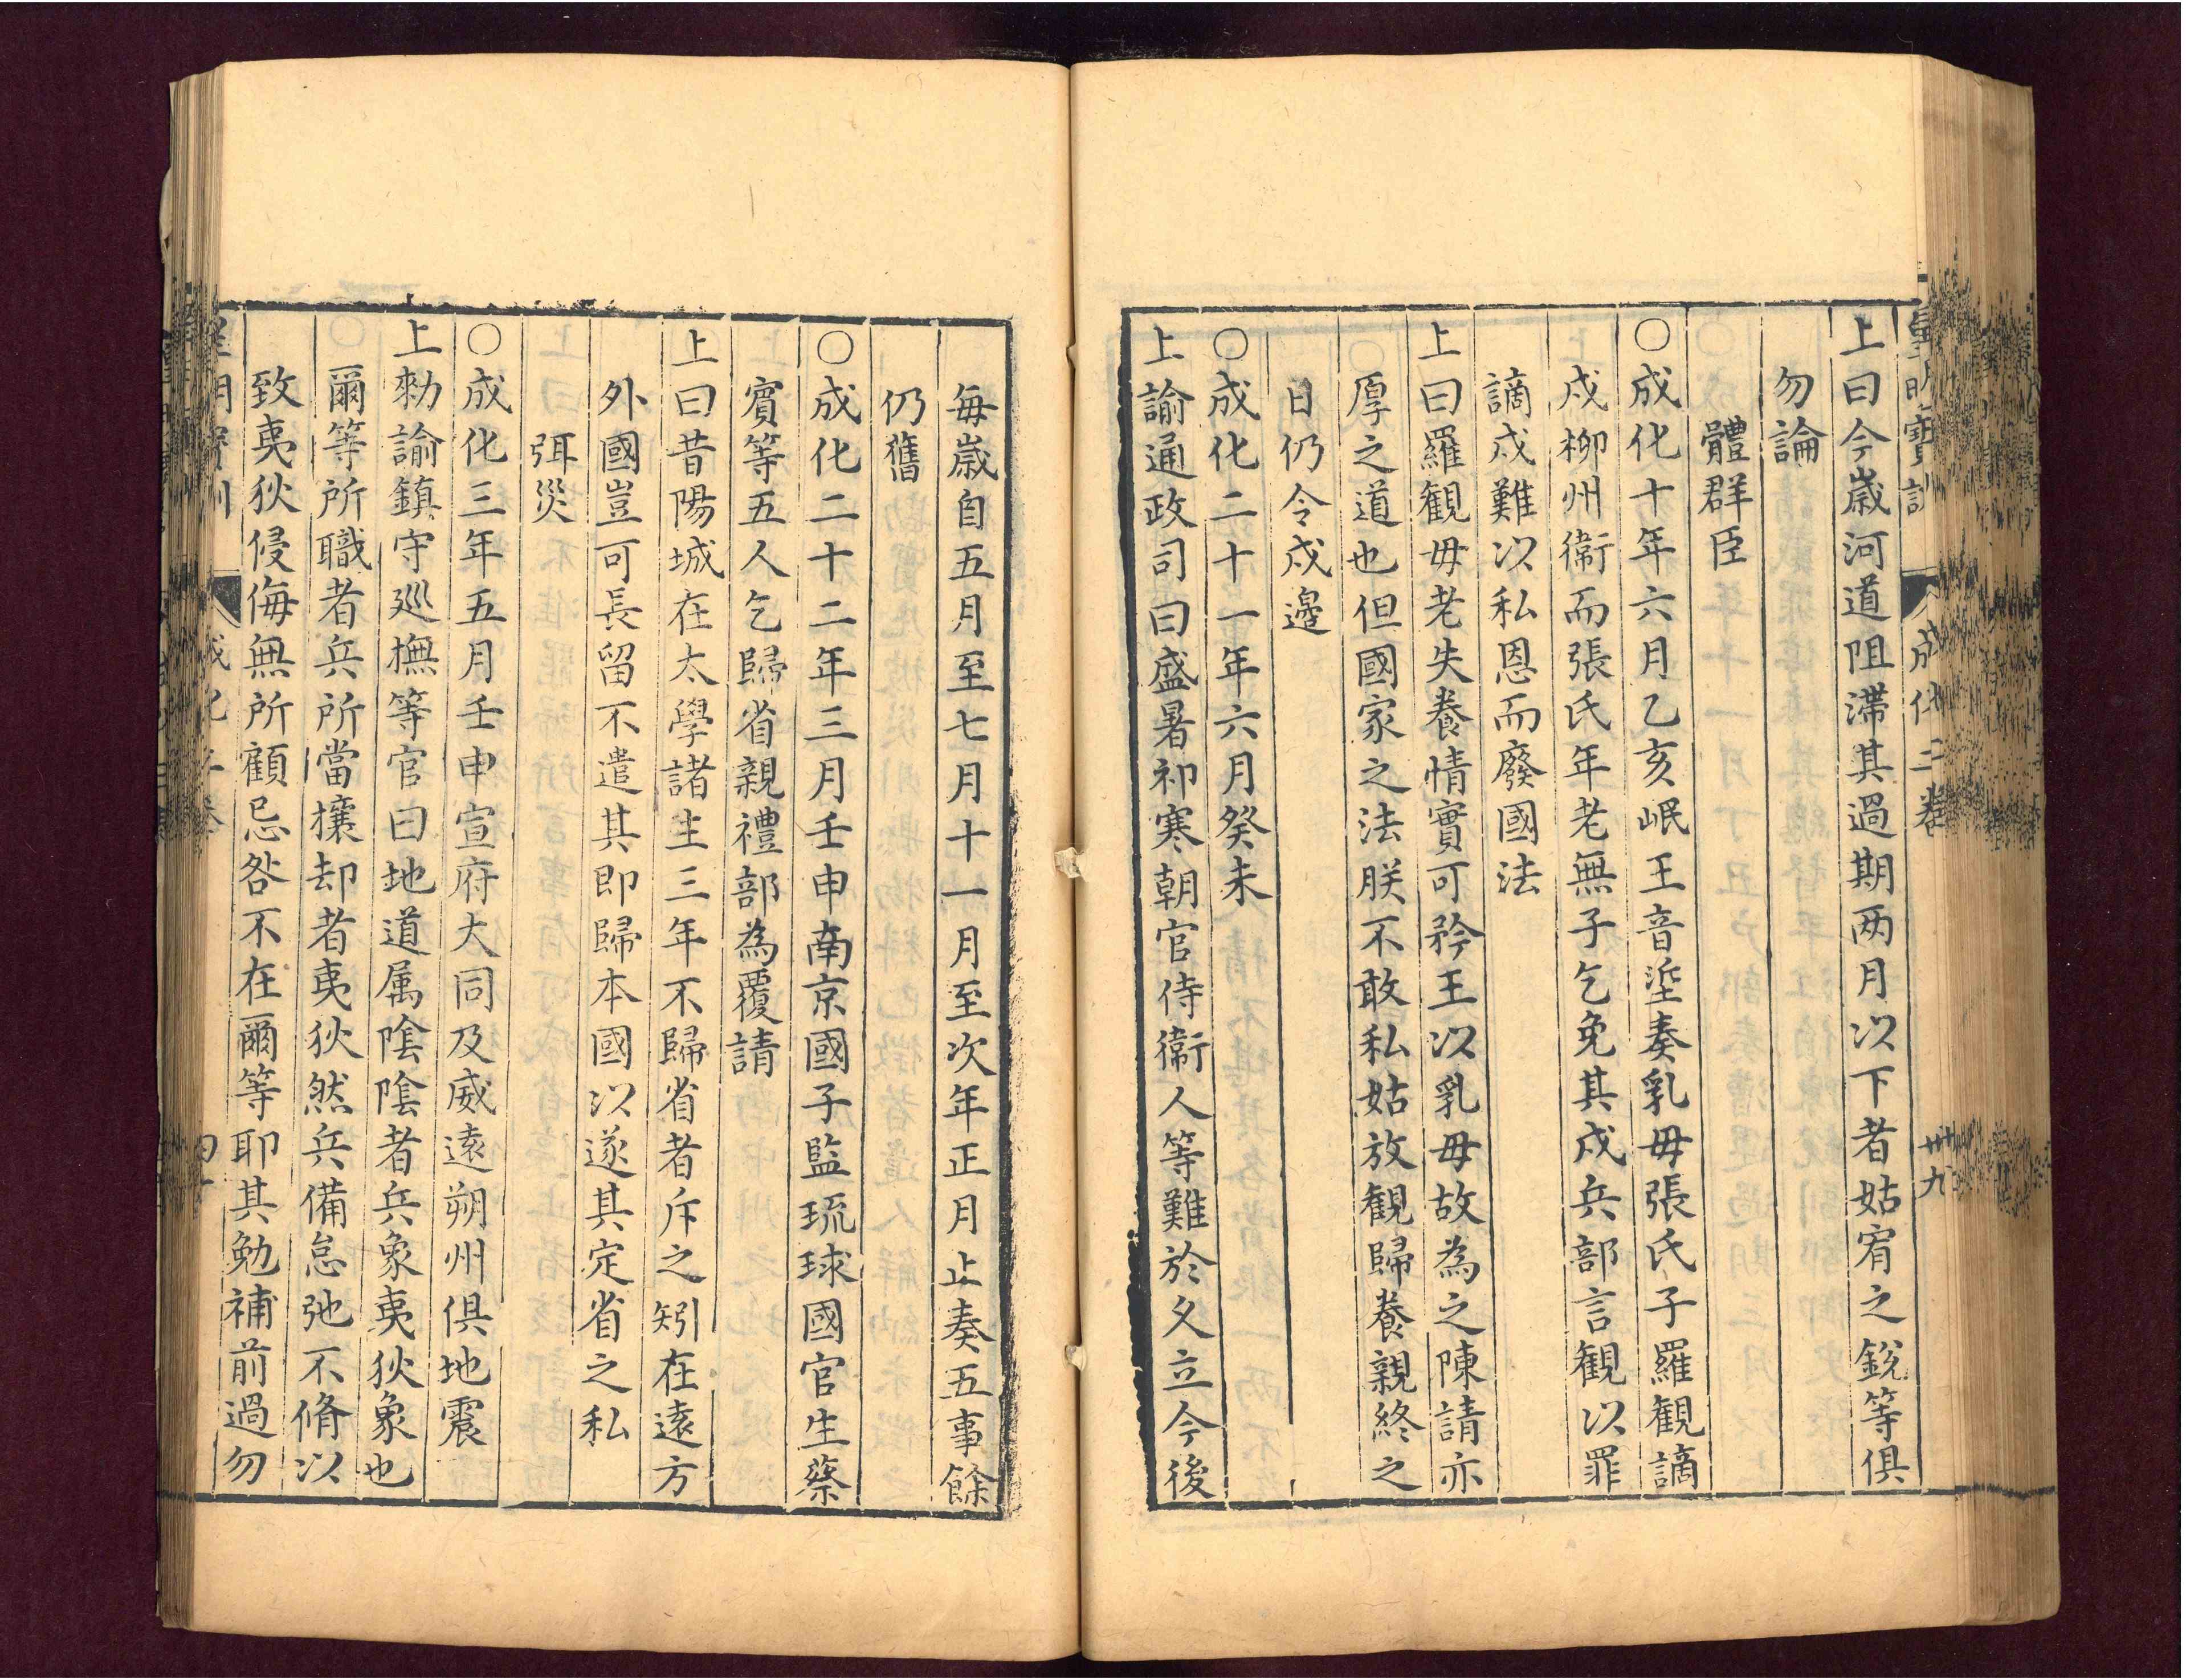 皇明寶訓 成化二卷 卅九
上曰今歲河道阻滯其過期两月以下者姑宥之銳等俱
勿論
體群臣
○成化十年六月乙亥岷王音垽奏乳毋張氏子羅觀謫
戍柳州衛而張氏年老無子乞免其戍兵部言觀以罪
謫戍難以私恩而廢國法
上曰羅觀毋老失養情實可矜王以乳毋故為之陳請亦
厚之道也但國家之法朕不敢私姑放觀歸養親終之
日仍令戍邊
○成化二十一年六月癸未
上諭通政司曰盛暑祁寒朝官侍衛人等難於久立今後
每歲自五月至七月十一月至次年正月止奏五事餘
仍舊
○成化二十二年三月壬申南京國子監琉球國官生蔡
賓等五人乞歸省親禮部為覆請
上曰昔陽城在太學諸生三年不歸省者斥之矧在遠方
外國豈可長留不遣其即歸本國以遂其定省之私
弭災
○成化三年五月壬申宣府大同及威遠朔州俱地震
上勑諭鎮守廵撫等官曰地道属隂隂者兵象夷狄象也
爾等所職者兵所當攘却者夷狄然兵備怠弛不脩以
致夷狄侵侮無所顧忌咎不在爾等耶其勉補前過勿